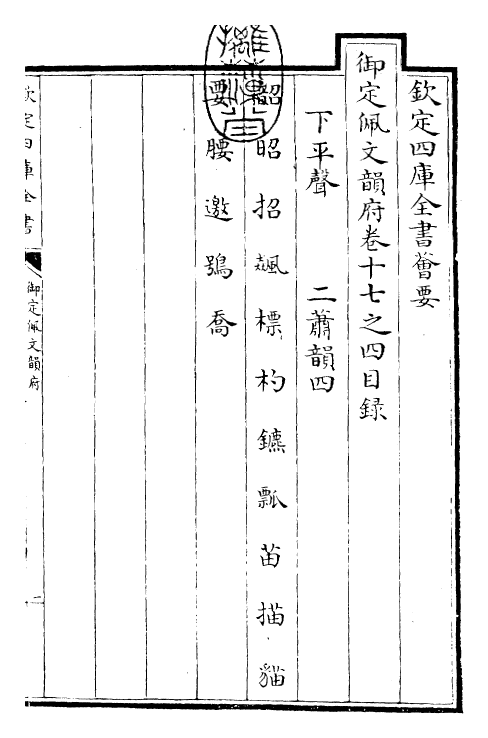 欽定四庫全書薈要
御定佩文韻府卷十七之四目錄
下平聲 二蕭韻四
韶 昭 招 飆 標 杓 鑣 瓢 苗 描 貓
要 腰 邀 鴞 喬
欽定四庫全書
御定佩文韻府